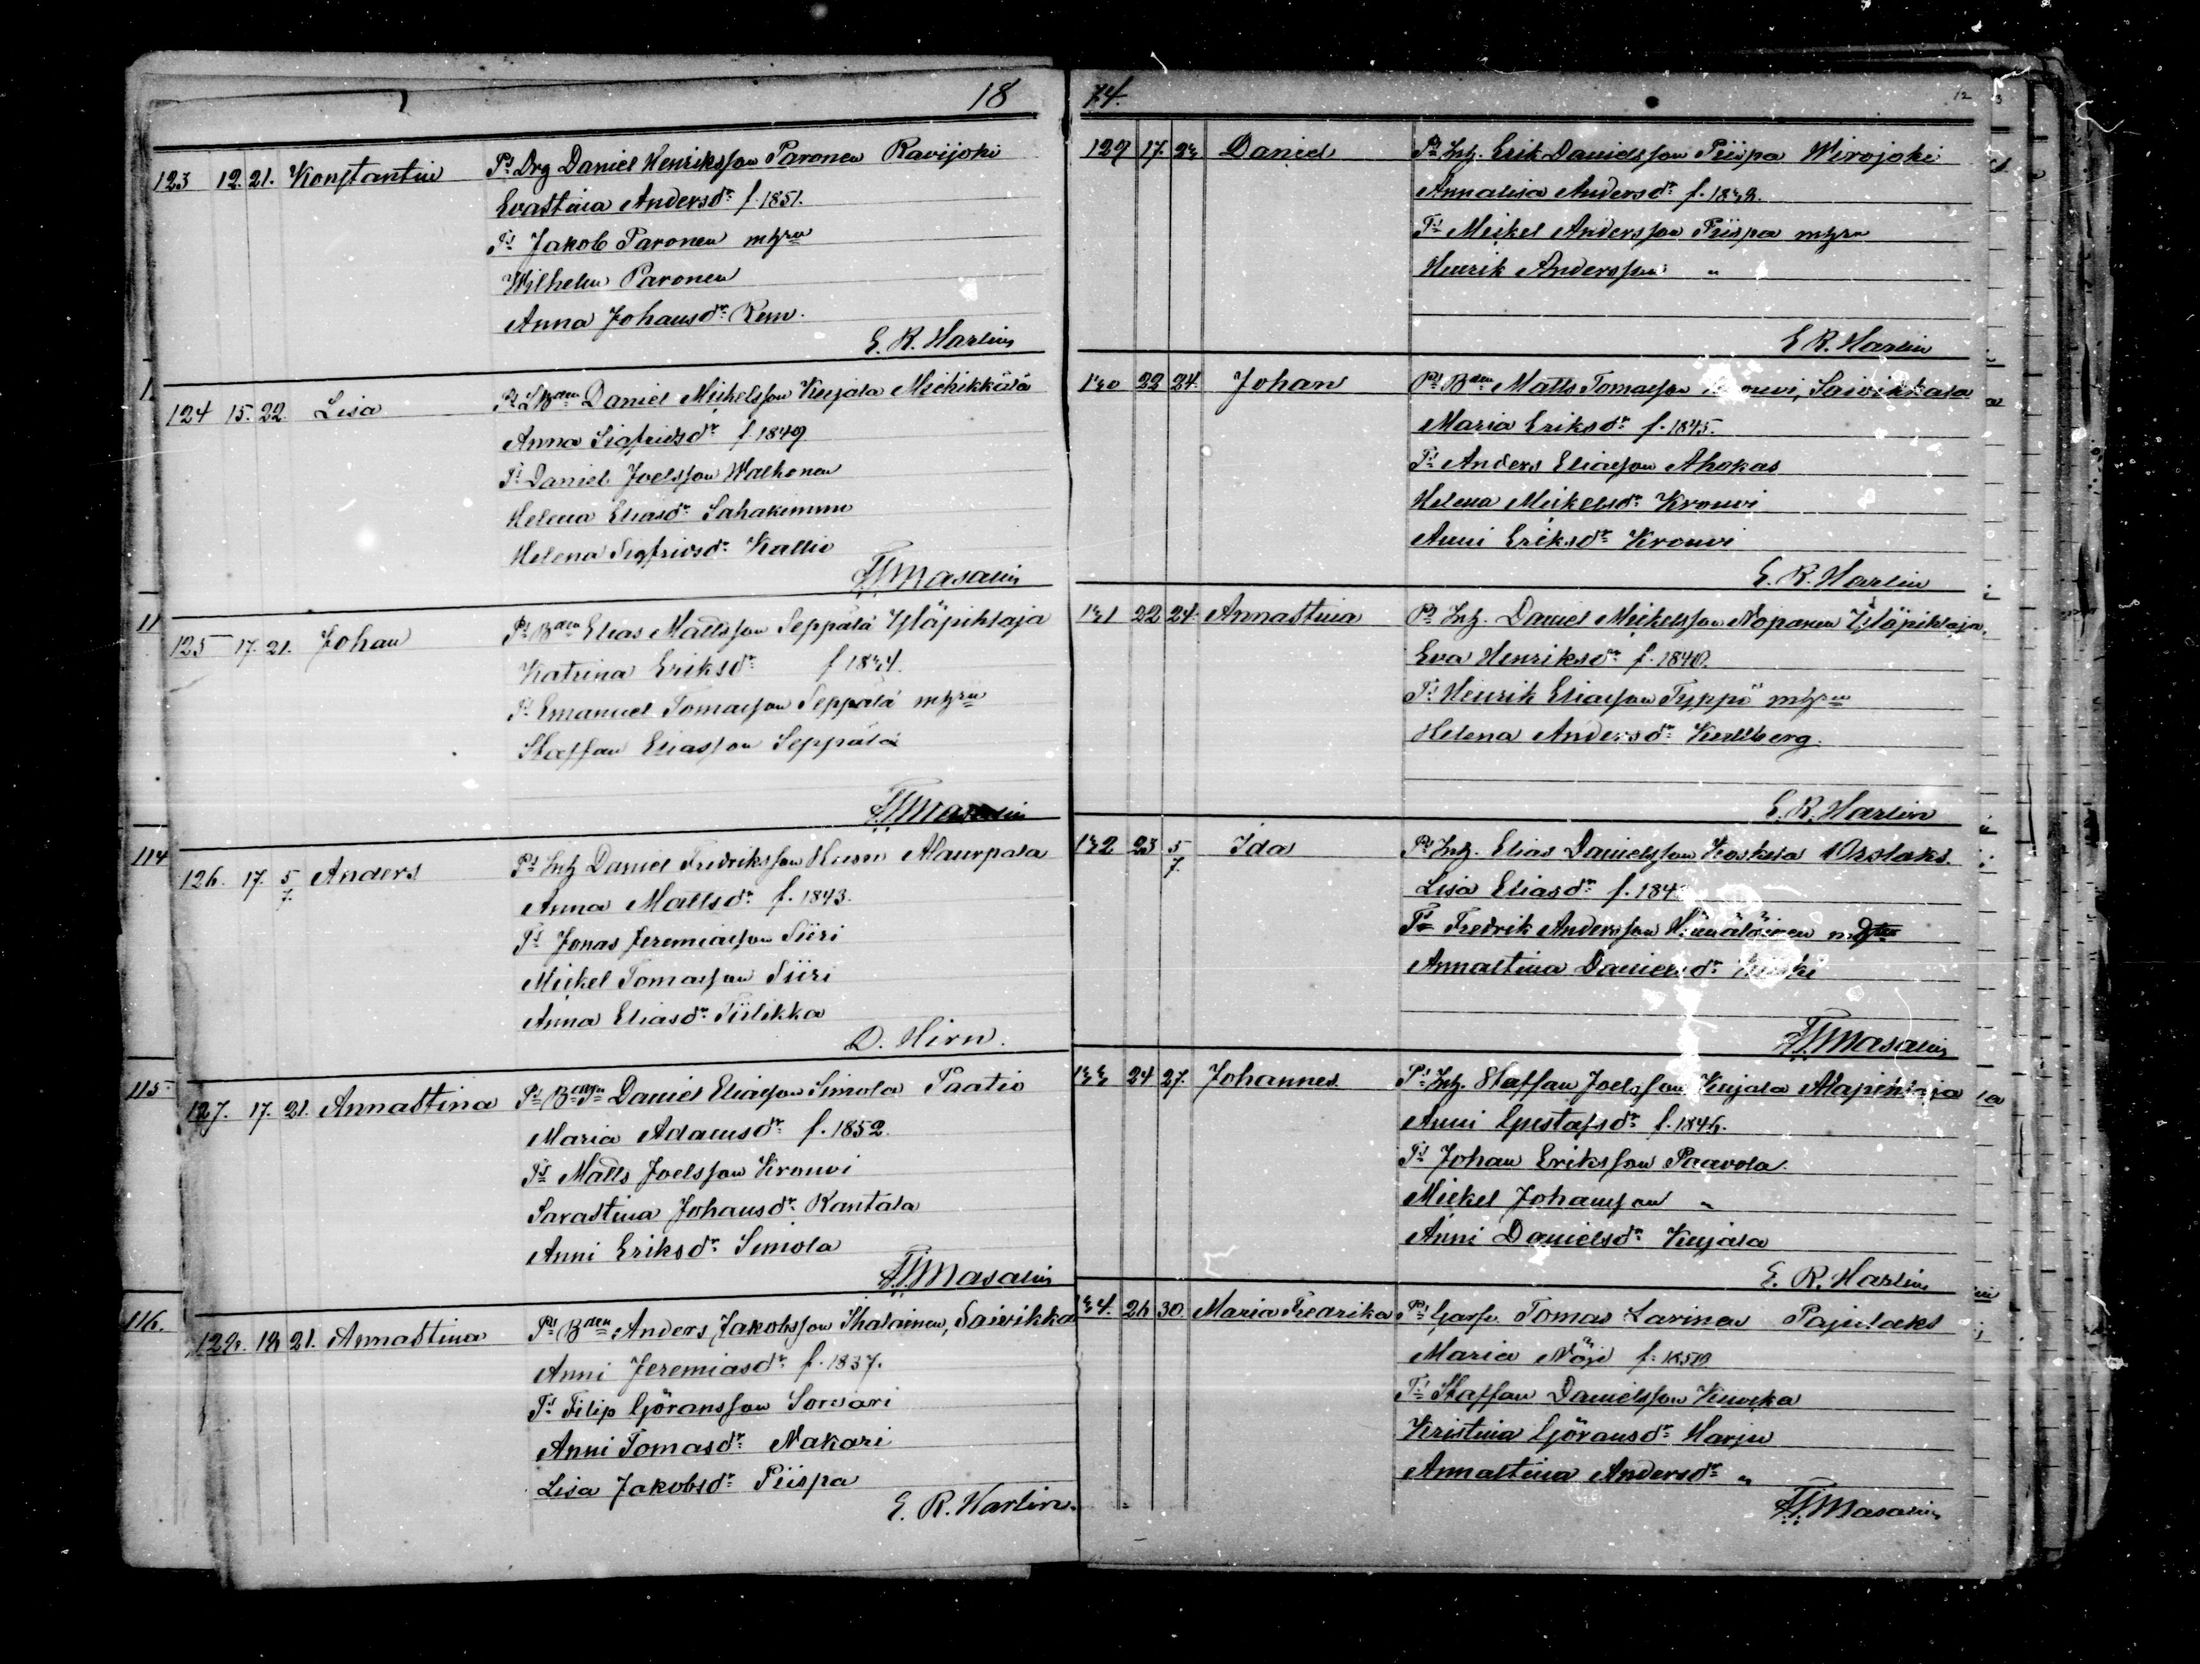 18
123 12. 21. Konstantin Ps Drg Daniel Henriksson Paronen Ravijoki
Evastina Andersdr f. 1851.
Ts Jakob Paronen mhru
Wilhelm Paronen
Anna Johansdr Rem.
E. R. Harlin
124 15. 22. Lisa Daniel Mickelsson Kujala Miehikkälä
Anna Sigfridsdr f. 1849
Ts Daniel Joelsson Walkonen
Helena Eliasdr
Helena Sigfridsdr Kallio
Masalin
11
125 17. 21. Johan Ps Bden Elias Mattsson Seppälä Yläpihlaja
Katrina Eriksdr f
Ts Emanuel Tomasson Seppälä mhru
Staffan Eliasson Seppälä
Masalin
114
126. 17. 5/7. Anders Ps Inh Daniel Fredriksson Alaurpala
Anna Mattsdr f. 1843.
Ts Jonas Jeremiasson Siiri
Mickel Tomasson Siiri
Anna Eliasdr Tiilikka
D. Hirn.
115
127. 17. 21. Annastina Daniel Eliasson Simola Paatio
Maria Adamsdr f. 1852.
Ts Matts Joelsson Krouvi
Sarastina Johansdr Rantala
Anni Eriksdr Simola
Masalin
116.
128. 18 21. Annastina Ps Bden Anders Jakobsson Ihalainen, Saivikka
Anni Jeremiasdr f. 1837.
Ts Filip Göransson Sorvari
Anni Tomasdr Nakari
Lisa Jakobsdr Piispa
E. R. Harlin.
74.
12
129 17. 23 Daniel Ps Inh. Erik Danielsson Piispa Wirojoki
Annalisa Andersdr f.
Ts Mickel Andersson Piispa mhru
Henrik Andersson "
E R. Harlin
130 22 24. Johan Ps Bden Matts Tomasson Saivikkala
Maria Eriksdr f. 1845.
Ts Anders Eliasson Ahokas
Helena Mickelsdr Krouvi
Anni Eriksdr Krouvi
E. R. Harlin
131 22 24. Annastina Ps Inh. Daniel Mickelsson Noponen Yläpihlaja.
Eva Henriksdr f. 1840.
Ts Henrik Eliasson Typpö mhru
Helena Andersdr
E. R. Harlin
132 23 5/7. Ida Ps Inh. Elias Danielsson Koskela Orslaks.
Lisa Eliasdr f. 184
Ts Fredrik Andersson Hämäläinen
Annastina Danielsdr
Masalin
133 24 27. Johannes Ps Inh. Staffan Joelsson Kujala Alapihlaja
Anni Gustafsdr f. 1846.
Ts Johan Eriksson Paavola.
Mickel Johansson "
Anni Danielsdr Kujala
E. R. Harlin
134. 26 30. Maria Fredrika Ps Tomas Larinen Pajulaks
Maria f. 1850
Ts Staffan Danielsson
Kristina Göransdr Harju
Annastina Andersdr "
Masalin